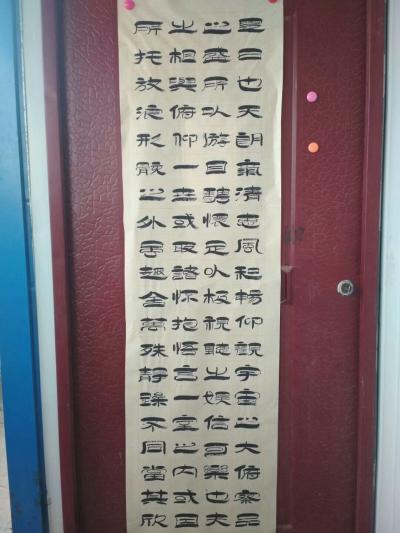 是日也天朗氣清惠風和暢仰觀宇宙之大俯察品
之盛所以游目騁懷足以極視聽之娛信可樂也夫
之相與俯仰一世或取諸怀抱悟言一室之内或因
所托放浪形骸之外虽趣舍萬殊靜躁不同當其欣